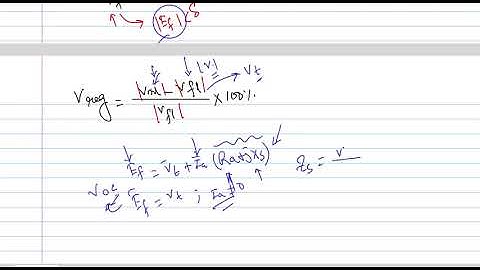 |Ef| δ
|V|
Vreg = |Vnl| - |Vfl| / |Vfl| × 100% Vt
Ef = Vt + Ia (Ra + jXs) Zs = V
Voc Ef = Vt ; Ia = 0